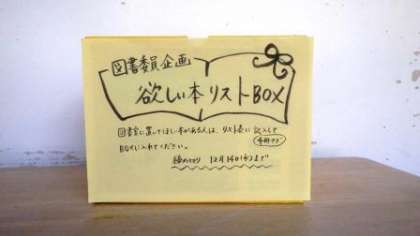 図書委員企画
欲しい本リストBOX
図書室に置いてほしい本がある人は、リスト表に記入して
BOXに入れてください。
締めきり 12月14日(水)まで